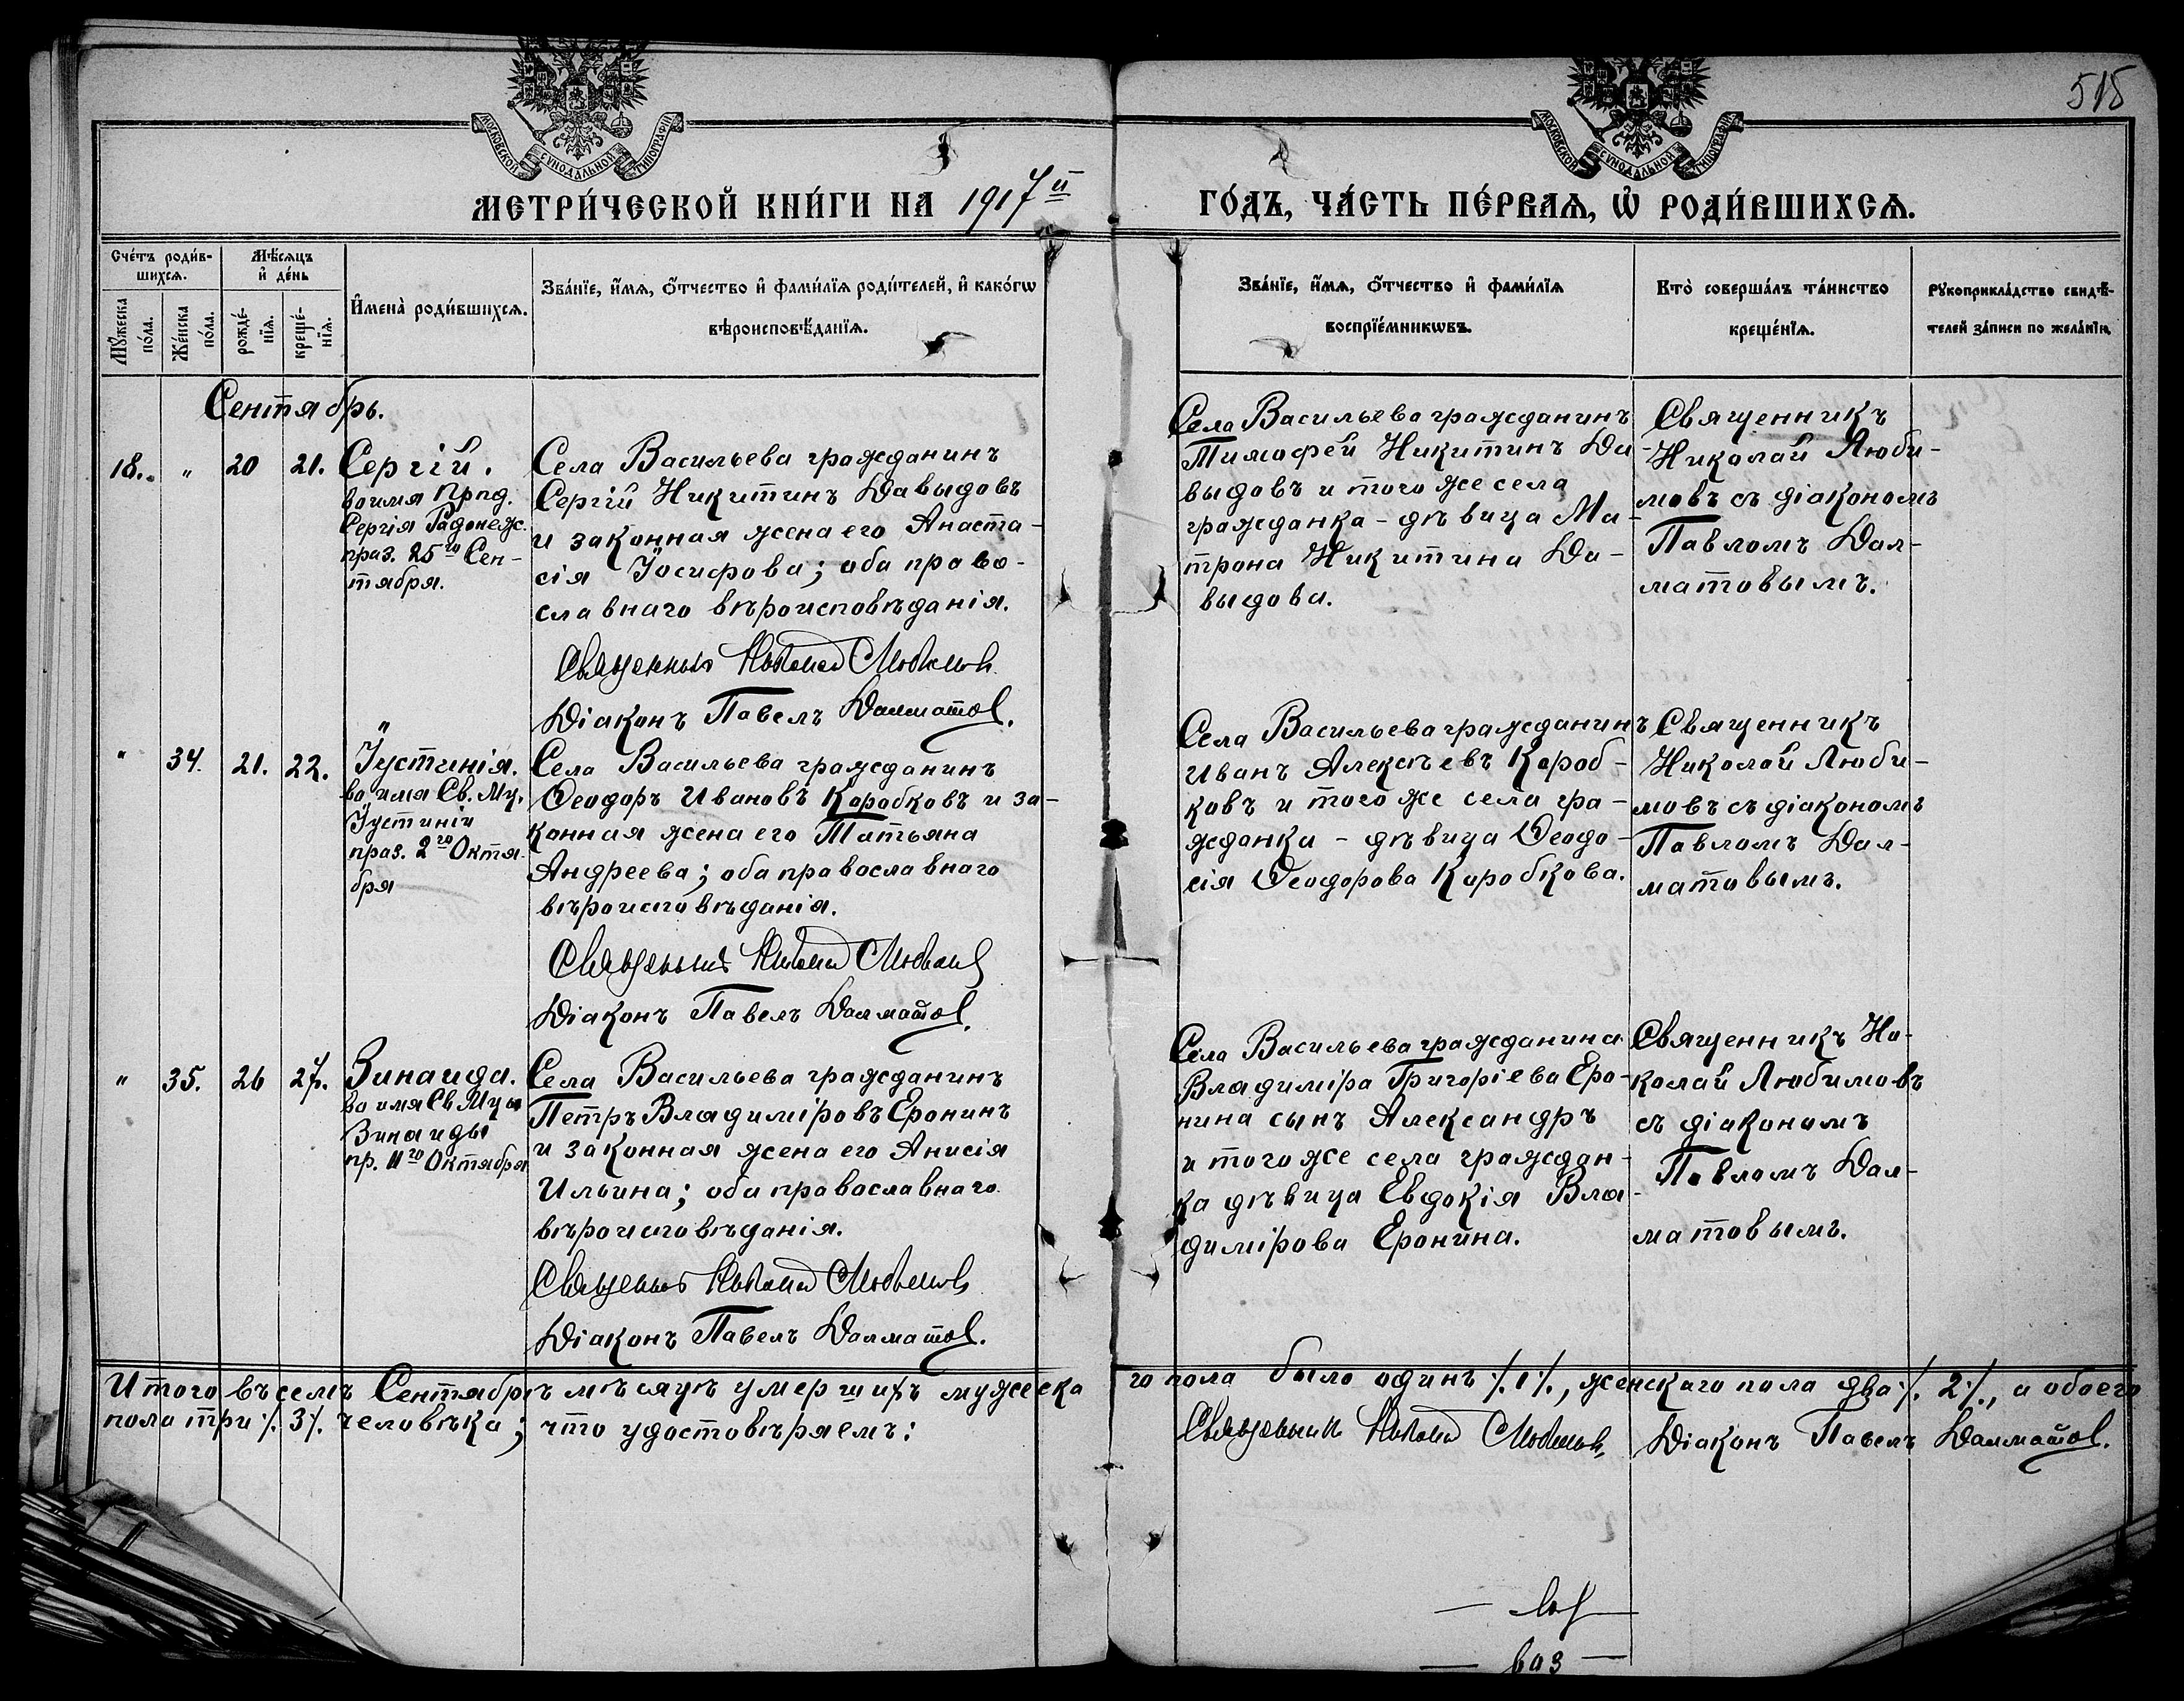 515
МОСКОВСКОЙ СУНОДАЛЬНОЙ ТИПОГРАФІИ
МОСКОВСКОЙ СУНОДАЛЬНОЙ ТИПОГРАФІИ
МЕТРИ́ЧЕСКОЙ КНИ́ГИ НА 1917й
ГО́ДЪ, ЧА́СТЬ ПЕ́РВАѦ, Ѡ РОДИ́ВШИХСѦ.
Сче́тъ роди́в-
шихсѧ.
Мꙋ́жеска
по́ла.
Же́нска
по́ла.
Мѣ́сѧцъ
и҆ де́нь
рожде́-
нїѧ.
креще́-
нїѧ.
И҆мена̀ роди́вшихсѧ.
Зва́нїе, и҆́мѧ, ѻ҆́тчество и҆ фами́лїѧ роди́телей, и҆ како́гѡ
вѣроисповѣ́данїѧ.
Зва́нїе, и҆́мѧ, ѻ҆́тчество и҆ фами́лїѧ
воспрїе́мникѡвъ.
Кто̀ соверша́лъ та́инство
креще́нїѧ.
Рꙋкоприкла́дство свидѣ́-
телей за́писи по жела́нїю.
Сентябрь.
18. " 20 21.
Сергій.
во имя Прпд.
Сергія Радонеж.
праз. 25го Сен-
тября.
Села Васильева гражданинъ
Сергій Никитинъ Давыдовъ
и законная жена его Анаста-
сія Іосифова; оба право-
славнаго вѣроисповѣданія.
Священникъ Николай Любимовъ
Діаконъ Павелъ Далматов.
Села Васильева гражданинъ
Тимофей Никитинъ Да-
выдовъ и того же села
гражданка - дѣвица Ма-
трона Никитина Да-
выдова.
Священникъ
Николай Люби-
мовъ съ діакономъ
Павломъ Дал-
матовымъ.
" 34. 21. 22.
Іустинія.
во имя Св. Му.
Іустиніи
праз. 2го Октя-
бря
Села Васильева гражданинъ
Ѳеодоръ Ивановъ Коробковъ и за-
конная жена его Татьяна
Андреева; оба православнаго
вѣроисповѣданія.
Священникъ Николай Любимовъ
Діаконъ Павелъ Далматов.
Села Васильева гражданинъ
Иванъ Алексѣевъ Короб-
ковъ и того же села гра-
жданка - дѣвица Ѳеодо-
сія Ѳеодорова Коробкова.
Священникъ
Николай Люби-
мовъ съ діакономъ
Павломъ Дал-
матовымъ.
" 35. 26 27.
Зинаида.
во имя Св Муы
Зинаиды
пр. 11го Октября
Села Васильева гражданинъ
Петръ Владиміровъ Еронинъ
и законная жена его Анисія
Ильина; оба православнаго
вѣроисповѣданія.
Священникъ Николай Любимовъ
Діаконъ Павелъ Далматов.
Села Васильева гражданина
Владиміра Григоріева Еро-
нина сынъ Александръ
и того же села граждан-
ка дѣвица Евдокія Вла-
димірова Еронина.
Священникъ Ни-
колай Любимовъ
съ діакономъ
Павломъ Дал-
матовымъ.
Итого въ семъ Сентябрѣ мѣсяцѣ умершихъ мужеска
го пола было одинъ ٪1٪, женскаго пола два ٪2٪, а обоего
пола три ٪3٪ человѣка; что удостовѣряемъ:
Священникъ Николай Любимовъ, Діаконъ Павелъ Далматов.